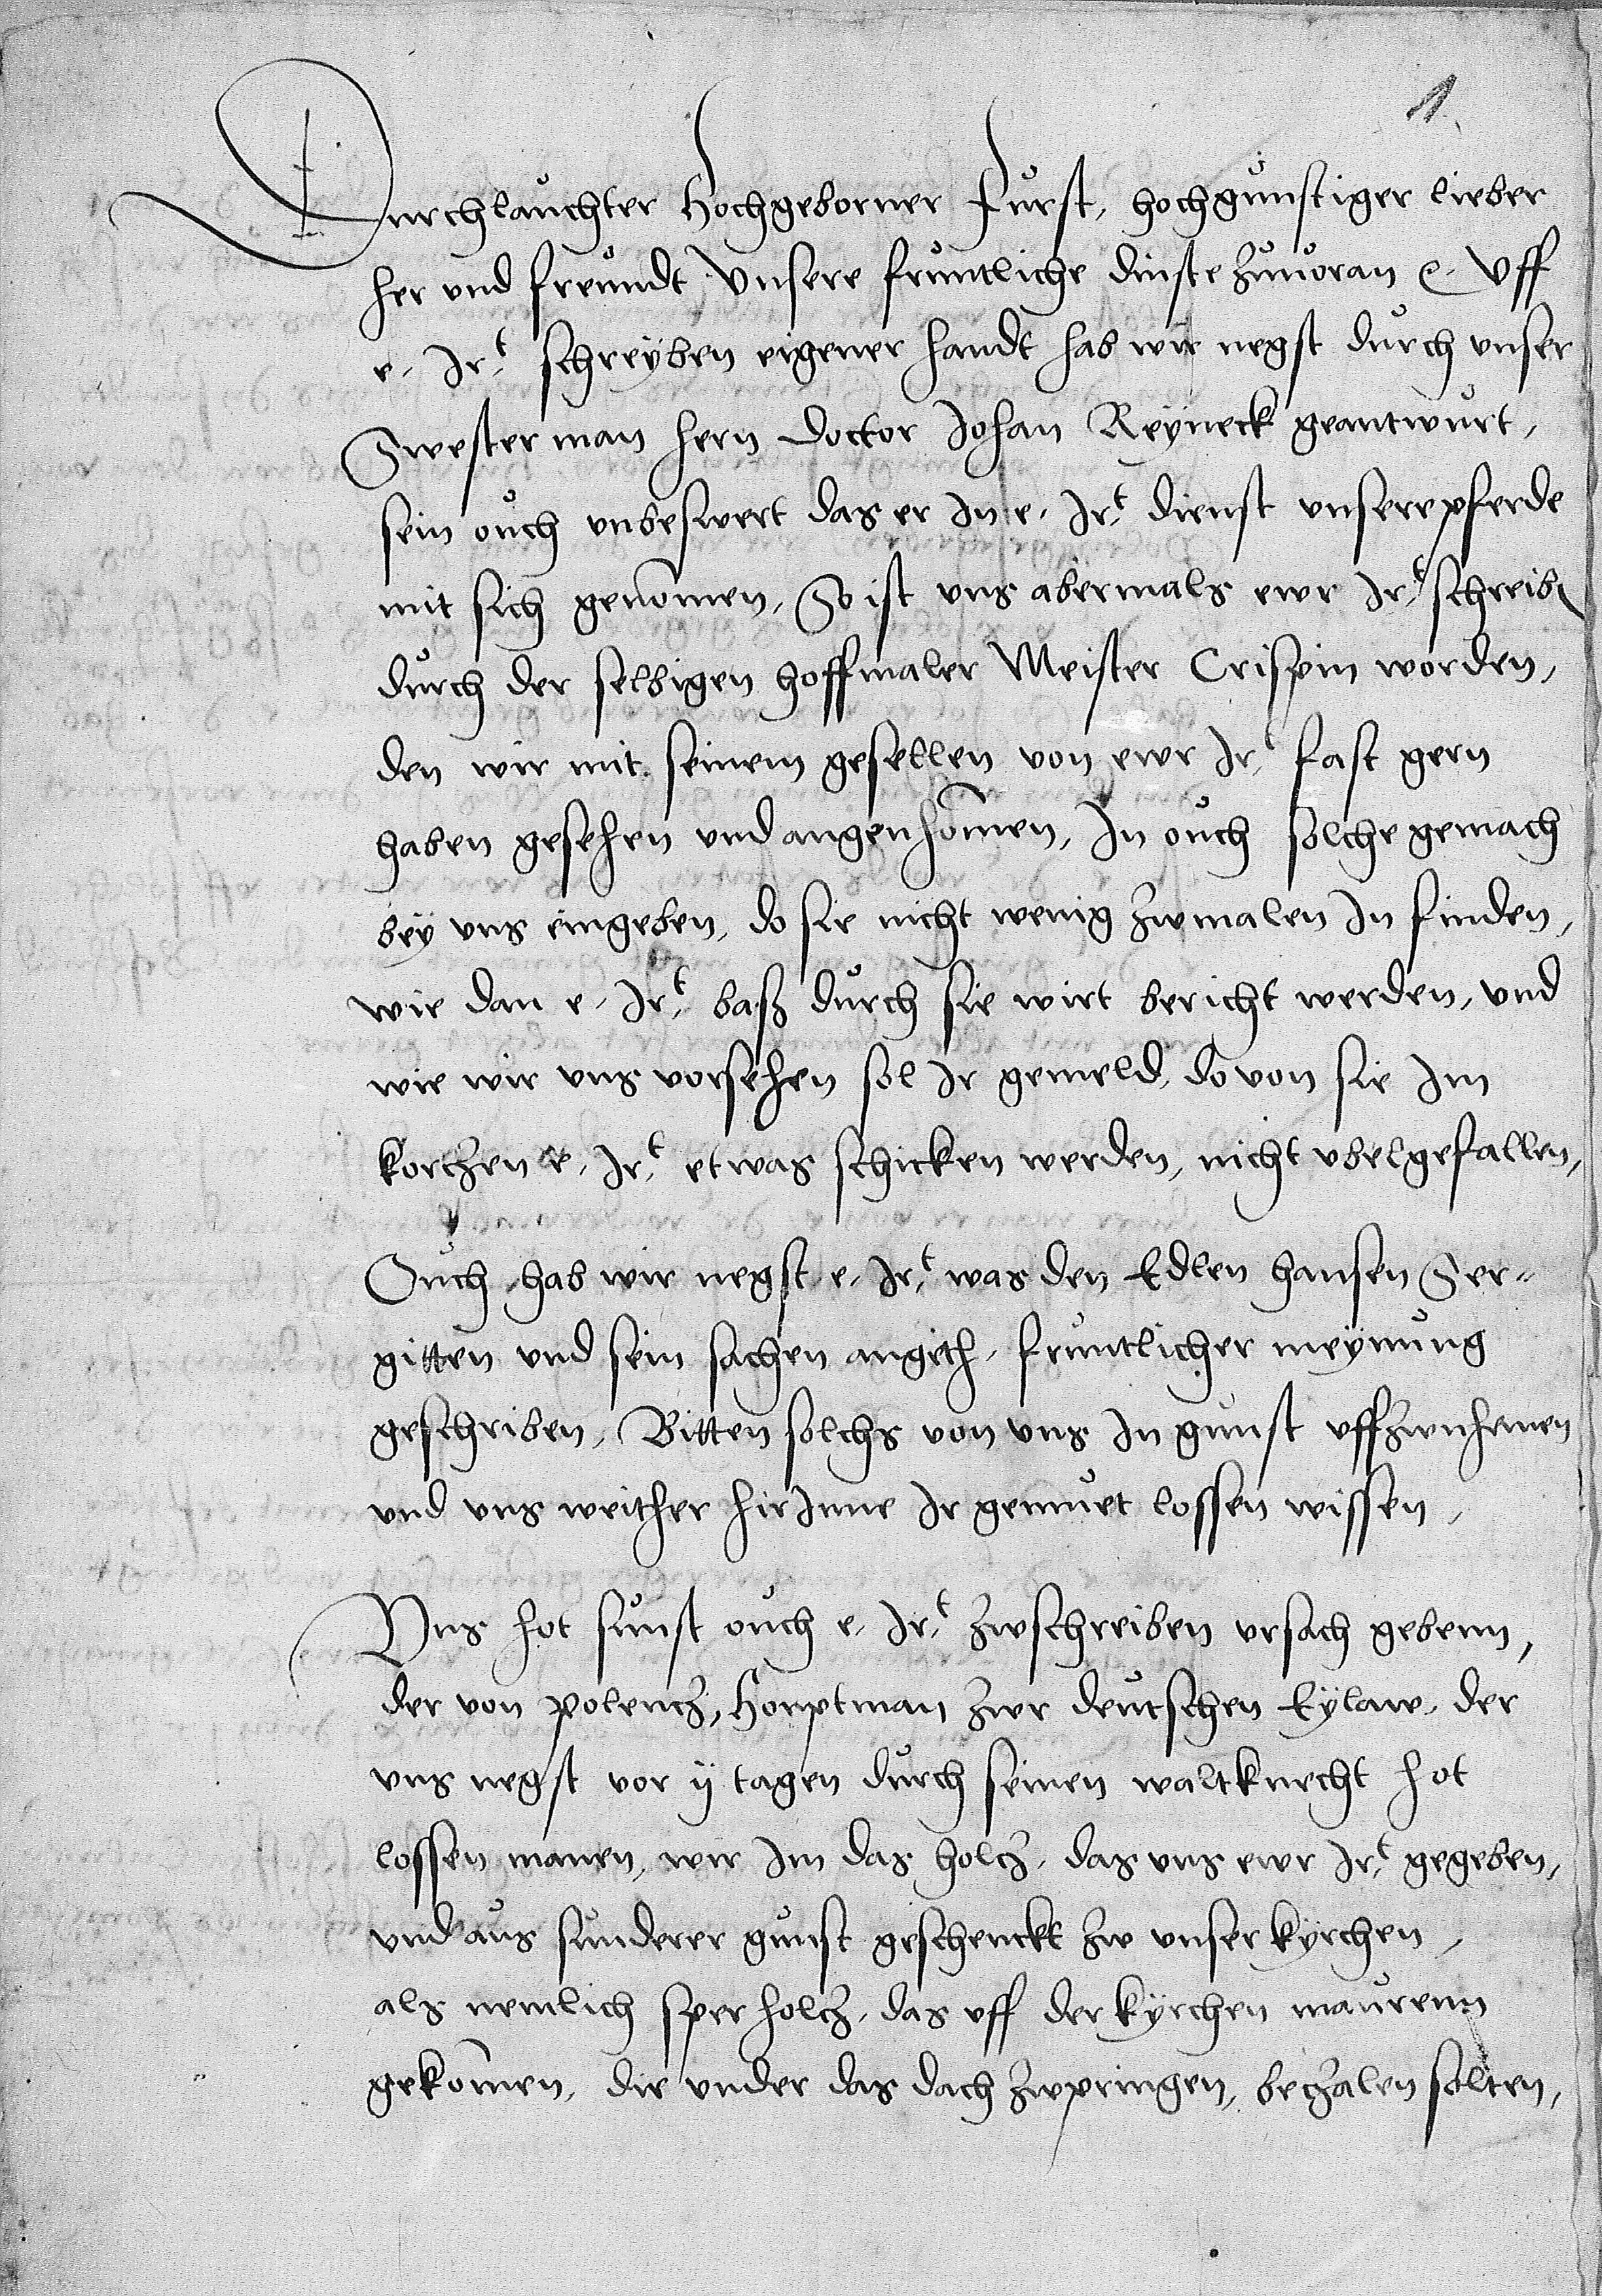 1.
Durchlauchter Hochgeborner Furst, hochgunstiger lieber
her vnd freundt Vnsere fruntliche dinste zuuoran ꝛc. Vff
e. Irt. schreyben eigener handt hab wir negst durch vnser
Swester man hern doctor Johan Reyneck geantwurt,
sein ouch vnbeswert das er In e. Irt. dienst vnsere pferde
mit sich genomen, So ist vns abermals ewr Irt. schreiben
durch der selbigen hoffmaler Meister Crispin worden,
den wir mit seinem gesellen von ewr Irt. fast gern
haben gesehen vnd angenhomen, In ouch solche gemach
bey vns eingeben, do sie nicht wenig zwmalen In finden,
wie dan e. Irt. bas durch sie wirt bericht werden, vnd
wie wir vns vorsehen sol Ir gemeld, do von sie Im
korczen e. Irt. etwas schicken werden, nicht vbelgefallen,
Ouch hab wir negst e. Irt. was den Edlen hansen Ser-
gitten vnd sein sachen angeth, fruntlicher meynung
geschriben, Bitten solchs von vns In gunst vffzwnhemen
vnd vns weither hirInne Ir gemuet lossen wissen,
Vns hot sunst ouch e. Irt. zwschreiben vrsach gebenn,
der von polencz, Houptman zwr deutschen Eylaw, der
vns negst vor ij tagen durch seinen waltknecht hot
lossen manen, wir Im das holcz, das vns ewr Irt. gegeben,
vnd aus sunderer gunst geschenckt zw vnser kyrchen,
als nemlich sper holcz, das vff der kyrchen maurenn
gekomen, die vnder das dach zwpringen, beczalen solten,